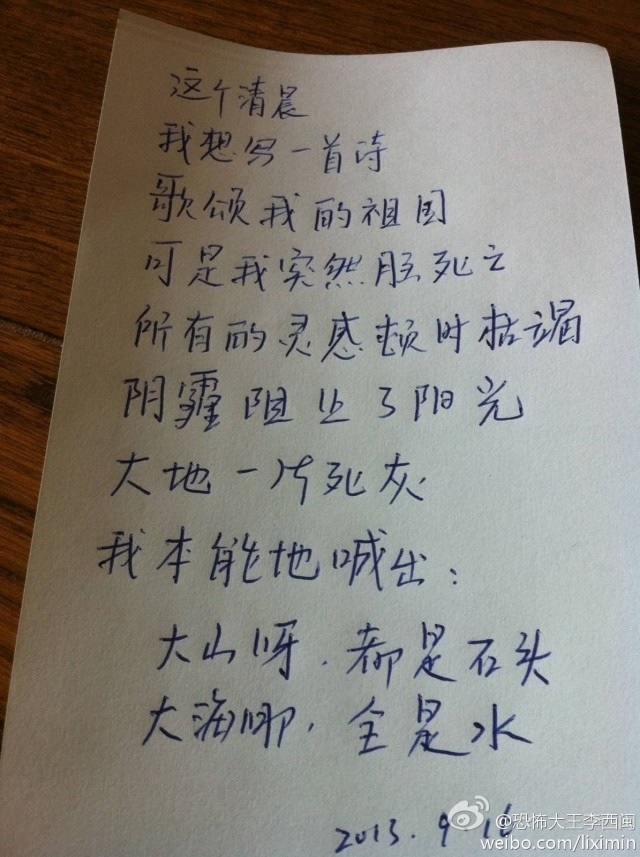 这个清晨
我想写一首诗
歌颂我的祖国
可是我突然脑死亡
所有的灵感顿时枯竭
阴霾阻止了阳光
大地一片死灰
我本能地喊出：
大山呀，都是石头
大海哪，全是水
2013.9.16
@恐怖大王李西闽
weibo.com/liximin